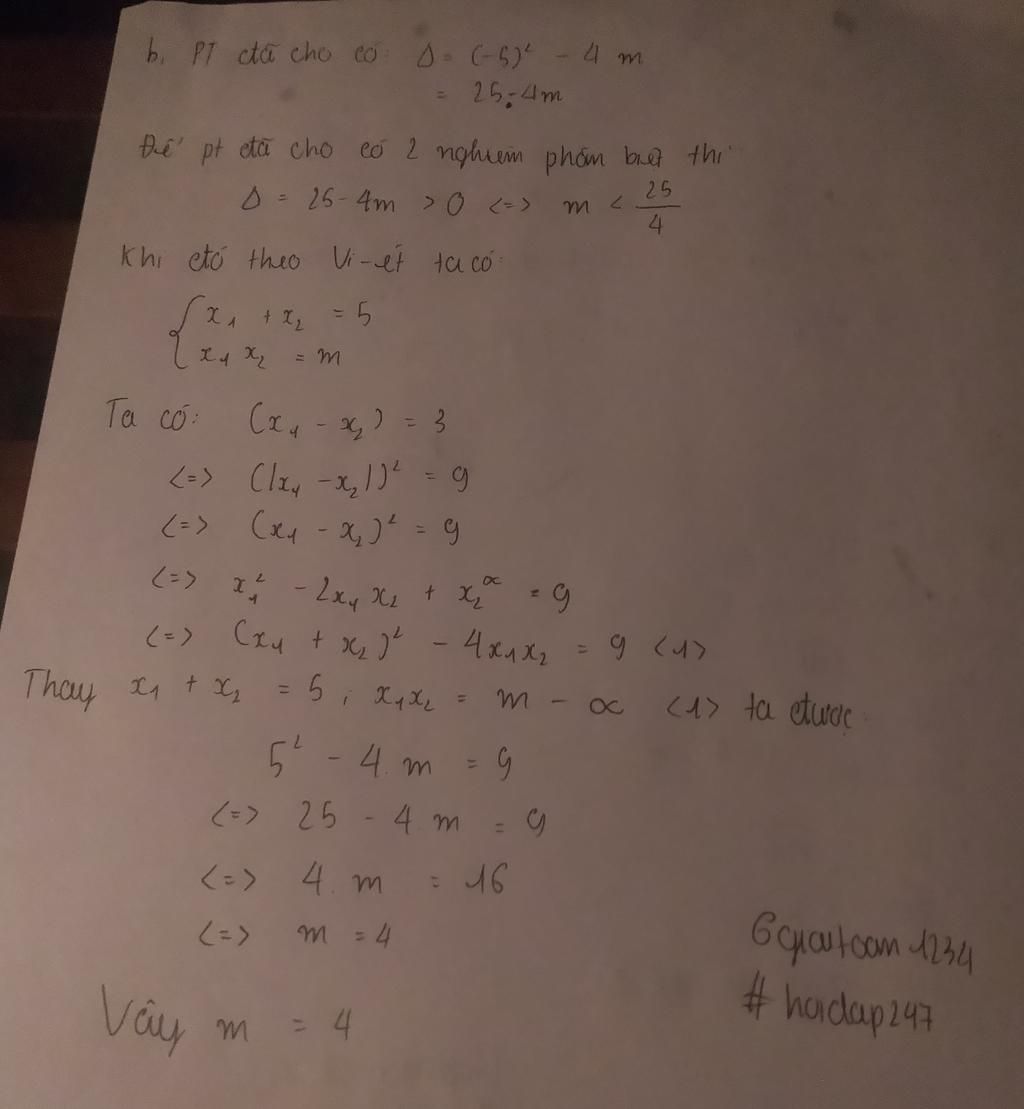 b, PT đã cho có: Δ = (-5)² - 4 m
= 25 - 4m
Để pt đã cho có 2 nghiệm phân biệt thì
Δ = 25 - 4m > 0 <=> m < 25/4
Khi đó theo Vi-ét ta có:
{ x₁ + x₂ = 5
x₁ x₂ = m
Ta có: (x₁ - x₂) = 3
<=> (|x₁ - x₂|)² = 9
<=> (x₁ - x₂)² = 9
<=> x₁² - 2x₁x₂ + x₂^∝ = 9
<=> (x₁ + x₂)² - 4x₁x₂ = 9 <1>
Thay x₁ + x₂ = 5 ; x₁x₂ = m - ∝ <1> ta được
5² - 4. m = 9
<=> 25 - 4 m = 9
<=> 4. m = 16
<=> m = 4
Vậy m = 4
1234
# hoidap247